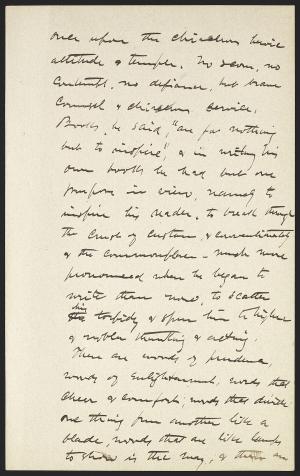 once upon the chivalrous heroic
attitude & temper. No scorn, no
contempt, no defiance, but brave
Counsel & chivalrous service.
Books, he said, "are for nothing
but to inspire", & in writing his
own books he had but one
purpose in view, namely to
inspire his reader, to break through
the crust of custom & conventionality
& the commonplace – much more
pronounced when he began to
write than now, to scatter
his torpidity & spur him to higher
& nobler thinking & acting.
There are words of prudence,
words of enlightenment, words that
cheer & comfort, words that divide
one thing from another like a
blade, words that are like lamps
to show us the way, & there are